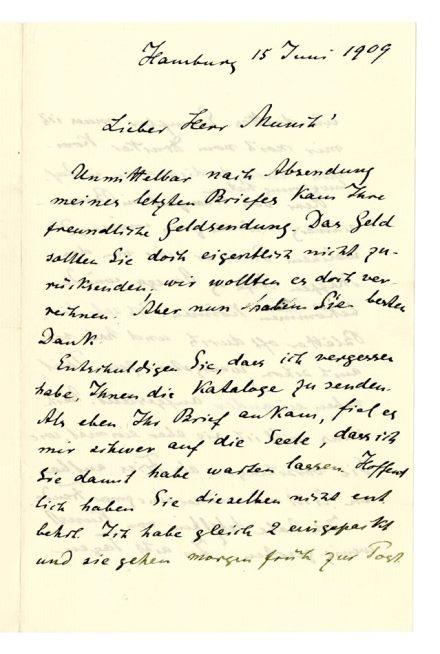 Hamburg 15 Juni 1909
Lieber Herr Munch!
Unmittelbar nach Absendung
meines letzten Briefes kam Ihre
freundliche Geldsendung. Das Geld
sollten Sie doch eigentlich nicht zu-
rücksenden. wir wollten es doch ver-
rechnen. Aber nun haben Sie besten
Dank
Entschuldigen Sie, dass ich vergessen
habe, Ihnen die Kataloge zu senden.
Als eben Ihr Brief ankam, fiel es
mir schwer auf die Seele, dass ich
Sie damit habe warten lassen. Hoffent
lich haben Sie dieselben nicht ent
behrt. Ich habe gleich 2 eingepackt
und sie gehen morgen früh zur Post.